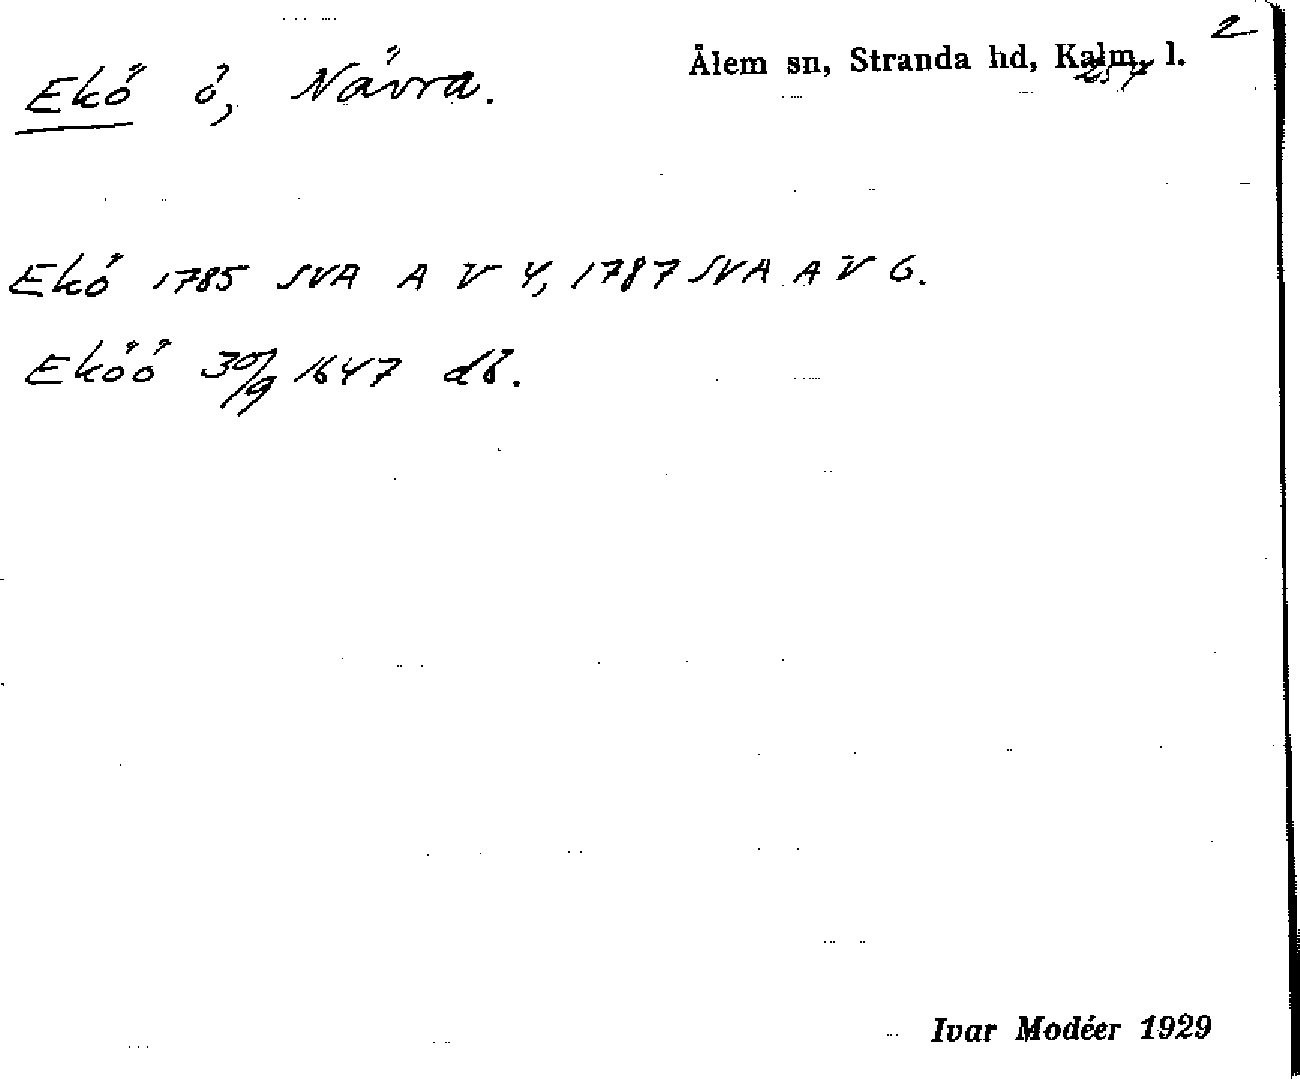 2
Ekö ö, Nävra. Ålem sn, Stranda hd, Kalm. l.
257
Ekö 1785 SVA A V 4, 1787 SVA A V 6.
Eköö 30/9 1647 db.
Ivar Modéer 1929